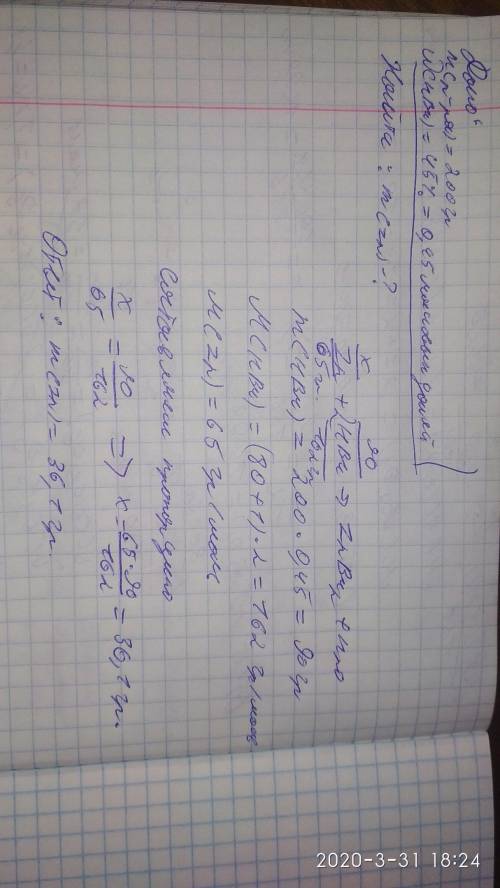 Дано:
m(р-ра) = 200 гр
ω(HBr) = 45% = 0,45 массовых долей
Найти: m(Zn)-?
x 90
Zn + 2HBr → ZnBr2 + H2O
65 гр. 162 гр
m(HBr) = 200 · 0,45 = 90 гр
M(HBr) = (80+1)·2 = 162 гр/моль
M(Zn) = 65 гр/моль
Составляем пропорцию
x/65 = 90/162 => x = 65·90/162 = 36,1 гр.
Ответ: m(Zn) = 36,1 гр.
2020-3-31 18:24